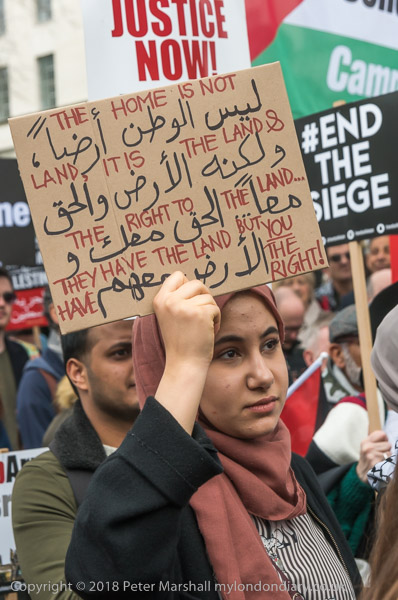 JUSTICE
NOW!
Cam
THE HOME IS NOT
ليس الوطن أرضاً،
LAND, IT IS THE LAND &
ولكنه الأرض والحق
THE RIGHT TO THE LAND...
معاً الحق معك و
THEY HAVE THE LAND BUT YOU
HAVE THE
الأرض معهم
RIGHT!
#END
THE
SIEGE
Copyright © 2018 Peter Marshall mylondondiary.co.uk